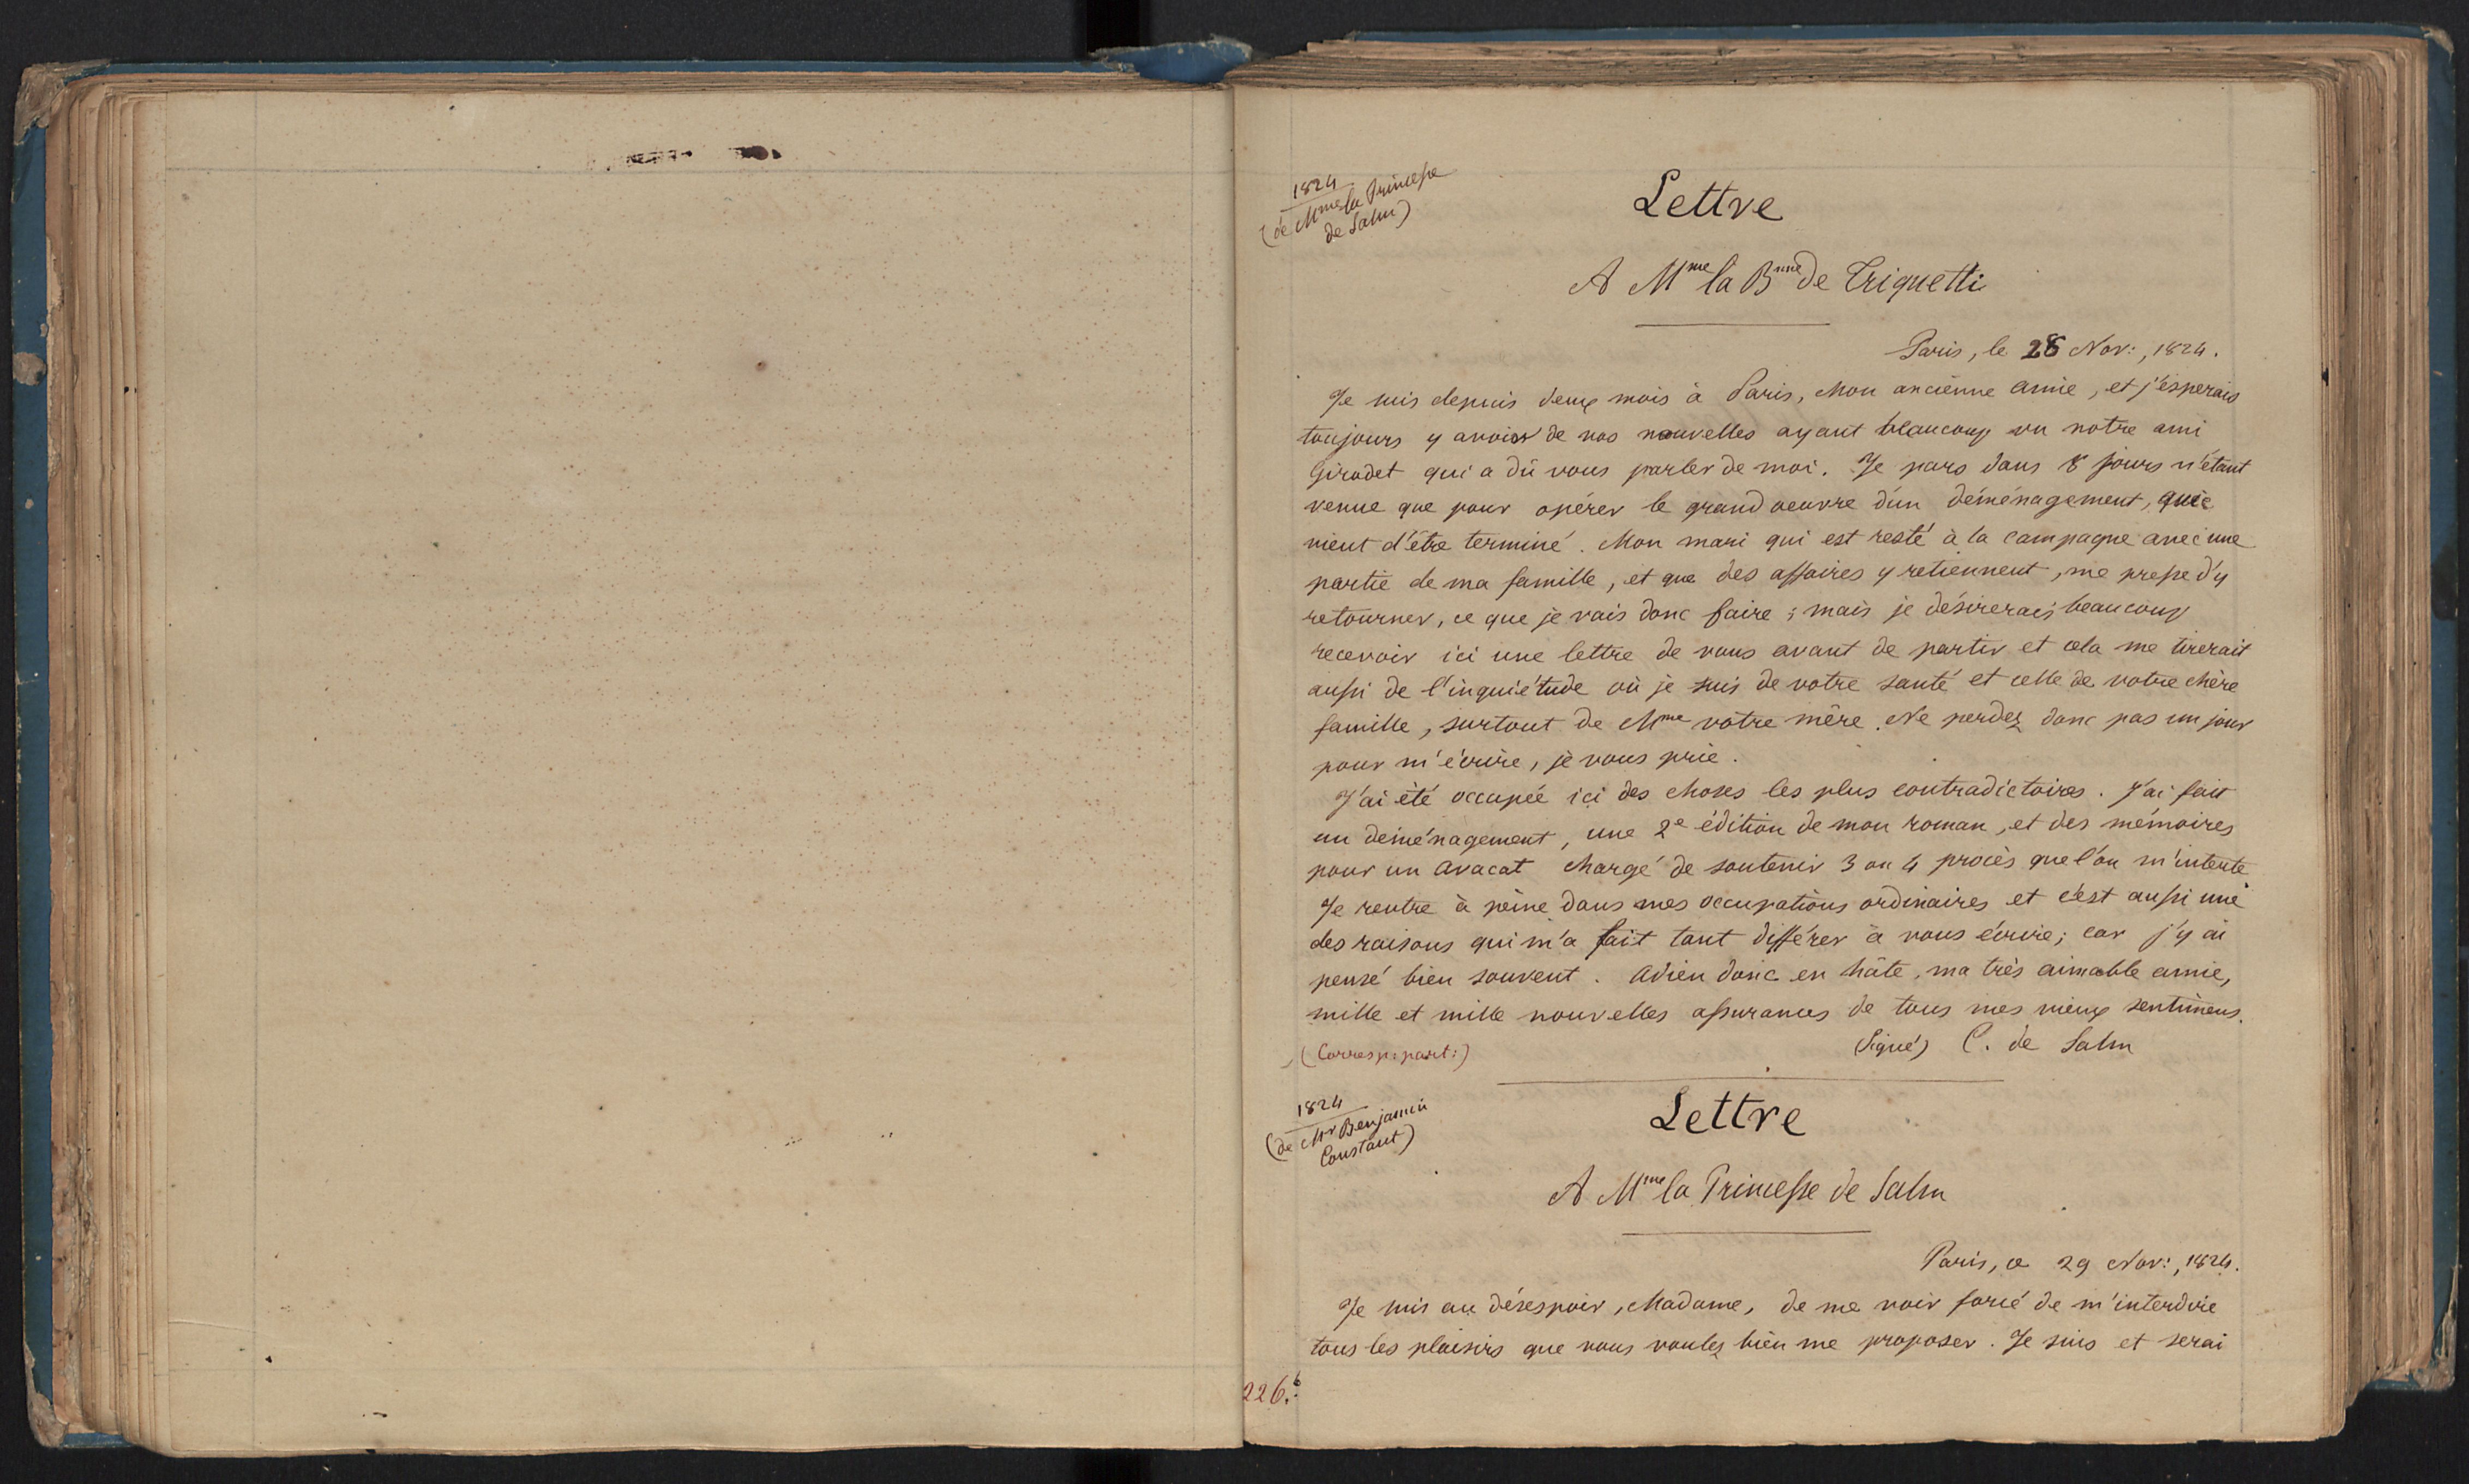 1824
(de Mme la Princesse
de Salm)
Lettre
A Mme la Bnne de Triquetti
Paris, le 28 Nov:, 1824.
Je suis depuis deux mois à Paris, Mon ancienne amie, et j'esperais
toujours y avoir de vos nouvelles ayant beaucoup vu notre ami
Girodet qui a dû vous parler de moi. Je pars dans 8 jours n'étant
venue que pour opérer le grand oeuvre d'un déménagement, qui
vient d'être terminé. Mon mari qui est resté à la campagne avec une
partie de ma famille, et que des affaires y retiennent, me presse d'y
retourner, ce que je vais donc faire; mais je désirerais beaucoup
recevoir ici une lettre de vous avant de partir et cela me tirerait
aussi de l'inquiétude où je suis de votre santé et celle de votre chère
famille, surtout de Mme votre mère. Ne perdez donc pas un jour
pour m'écrire, je vous prie.
J'ai été occupée ici des choses les plus contradictoires. J'ai fait
un déménagement, une 2e édition de mon roman, et des mémoires
pour un avacat chargé de soutenir 3 ou 4 procès que l'on m'intente
Je rentre à peine dans mes occupations ordinaires et c'est aussi une
des raisons qui m'a fait tant différer à vous écrire; car j'y ai
pensé bien souvent. Adieu donc en hâte, ma très aimable amie,
mille et mille nouvelles assurances de tous mes vieux sentimens.
(Corresp: part:)
(Signé) C. de Salm
1824
(de Mr Benjamin
Constant)
Lettre
A Mme la Princesse de Salm
Paris, ce 29 Nov:, 1824.
Je suis au désespoir, Madame, de me voir forcé de m'interdire
tous les plaisirs que vous voulez bien me proposer. Je suis et serai
226.b